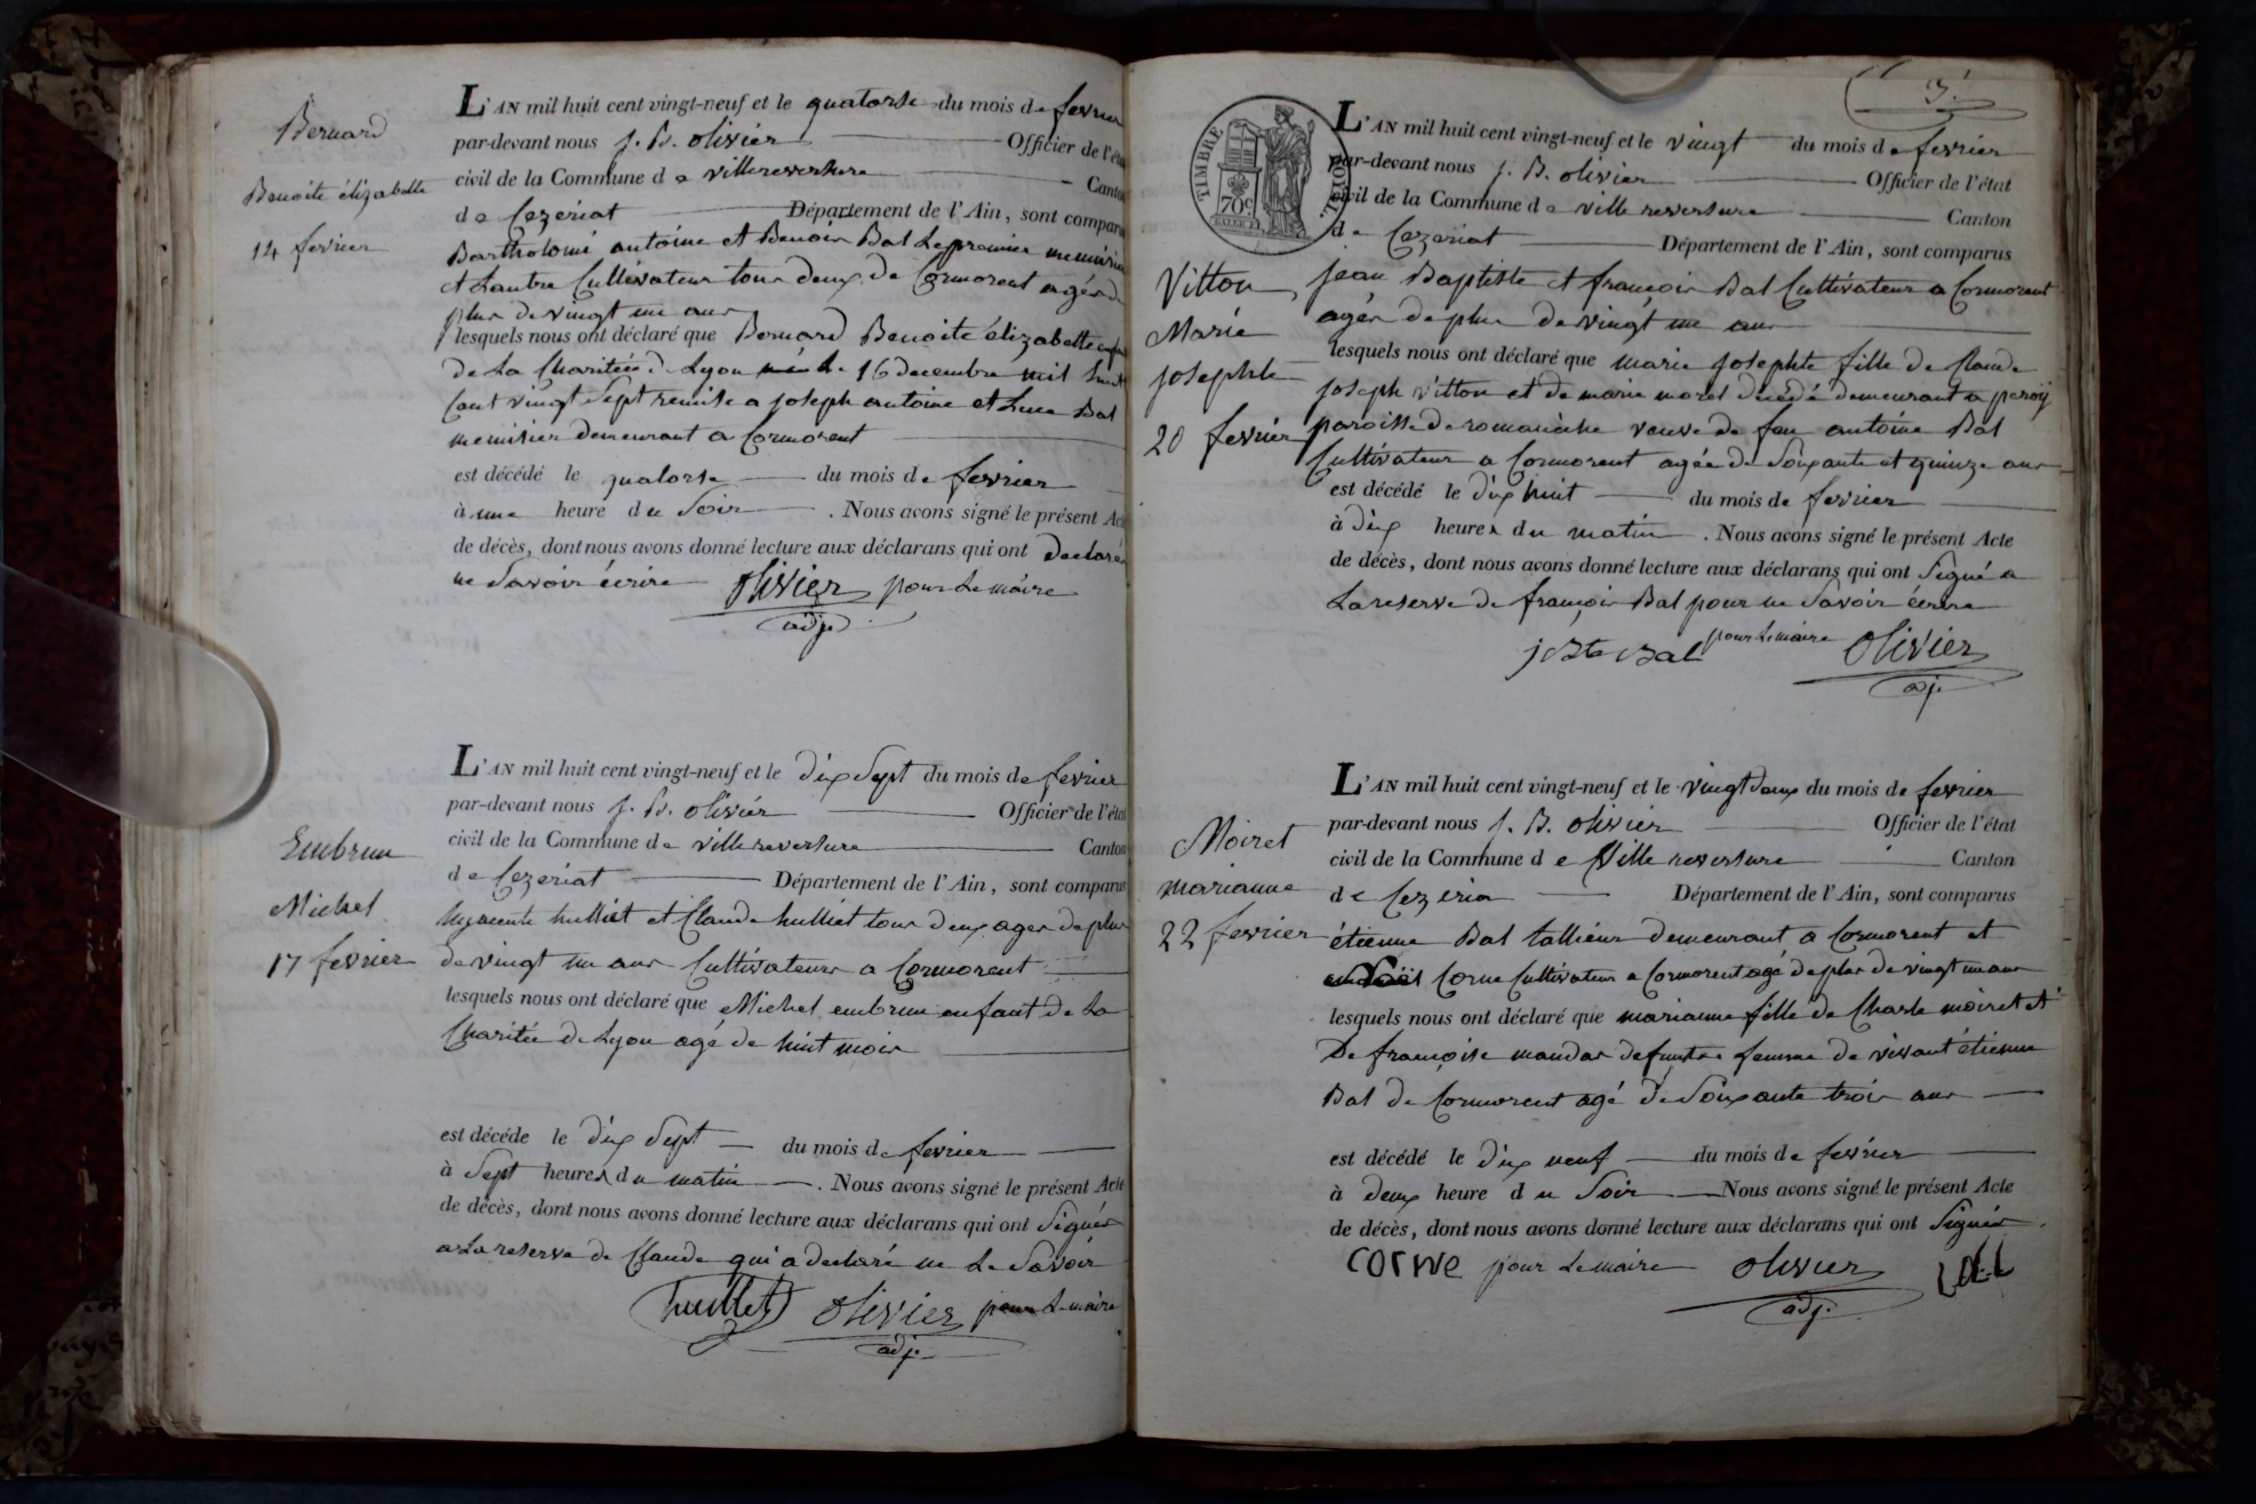 Bernard
Benoite élizabette
14 fevrier
L'AN mil huit cent vingt-neuf et le quatorse du mois de fevrier
par-devant nous J. B. olivier Officier de l'état
civil de la Commune de villereversure Canton
de Cezeriat Département de l'Ain, sont comparus
Bartholomi antoine et Benoir Bal Le premier menuisier
et Lautre Cultivateur tous deux de Cormorent agés de
plus de vingt un ans
lesquels nous ont déclaré que Bernard Benoite élizabette enfant
de La Charitée de Lyon née Le 16 decembre mil huit
Cent vingt Sept remise a joseph antoine et Luce Bal
menisier demeurant a Cormorent
est décédé le quatorse du mois de fevrier
à une heure du Soir . Nous avons signé le présent Acte
de décès, dont nous avons donné lecture aux déclarans qui ont declarés
ne Savoir écrire olivier pour Le maire
adj.
Embrun
Michel
17 fevrier
L'AN mil huit cent vingt-neuf et le dix Sept du mois de fevrier
par-devant nous J. B. olivier Officier de l'état
civil de la Commune de villereversure Canton
de Cezeriat Département de l'Ain, sont comparus
hyacente hulliet et Claude hulliet tous deux ages de plus
de vingt un ans Cultivateurs a Cormorent
lesquels nous ont déclaré que Michel embrun enfant de La
Charitée de Lyon agé de huit mois
est décéde le dix Sept du mois de fevrier
à Sept heures du matin . Nous avons signé le présent Acte
de décès, dont nous avons donné lecture aux déclarans qui ont Signés
a La reserve de Claude qui a declaré ne Le Savoir
huillet olivier pour Le maire
adj.
3.
TIMBRE ROYAL
70 c
L'AN mil huit cent vingt-neuf et le vingt du mois de fevrier
par-devant nous J. B. olivier Officier de l'état
civil de la Commune de ville reversure Canton
de Cezeriat Département de l'Ain, sont comparus
Vitton
Marie
josephte
20 fevrier
jean Baptiste et françois Bal Cultivateur a Cormorent
agés de plus de vingt un ans
lesquels nous ont déclaré que marie josephte fille de Claude
joseph vitton et de marie morel décédé demeurant a peroÿ
paroisse de romanèche veuve de feu antoine Bal
Cultivateur a Cormorent agée de Soixante et quinze ans
est décédé le dix huit du mois de fevrier
à dix heures du matin . Nous avons signé le présent Acte
de décès, dont nous avons donné lecture aux déclarans qui ont Signé a
La reserve de françois Bal pour ne Savoir écrire
j Bte Bal pour Le maire olivier
adj.
Moiret
marianne
22 fevrier
L'AN mil huit cent vingt-neuf et le vingt deux du mois de fevrier
par-devant nous J. B. olivier Officier de l'état
civil de la Commune de Ville reversure Canton
de Cezeria Département de l'Ain, sont comparus
étienne Bal tallieur demeurant a Cormorent et
Corne Cultivateur a Cormorent agé de plus de vingt un ans
lesquels nous ont déclaré que marianne fille de Charle moiret et
De françoise mandar defuntre femme de vivant étienne
Bal de Cormorent agé de Soixante trois ans
est décédé le dix neuf du mois de fevrier
à deux heure du Soir Nous avons signé le présent Acte
de décès, dont nous avons donné lecture aux déclarans qui ont Signés
corne pour Le maire olivier
adj.